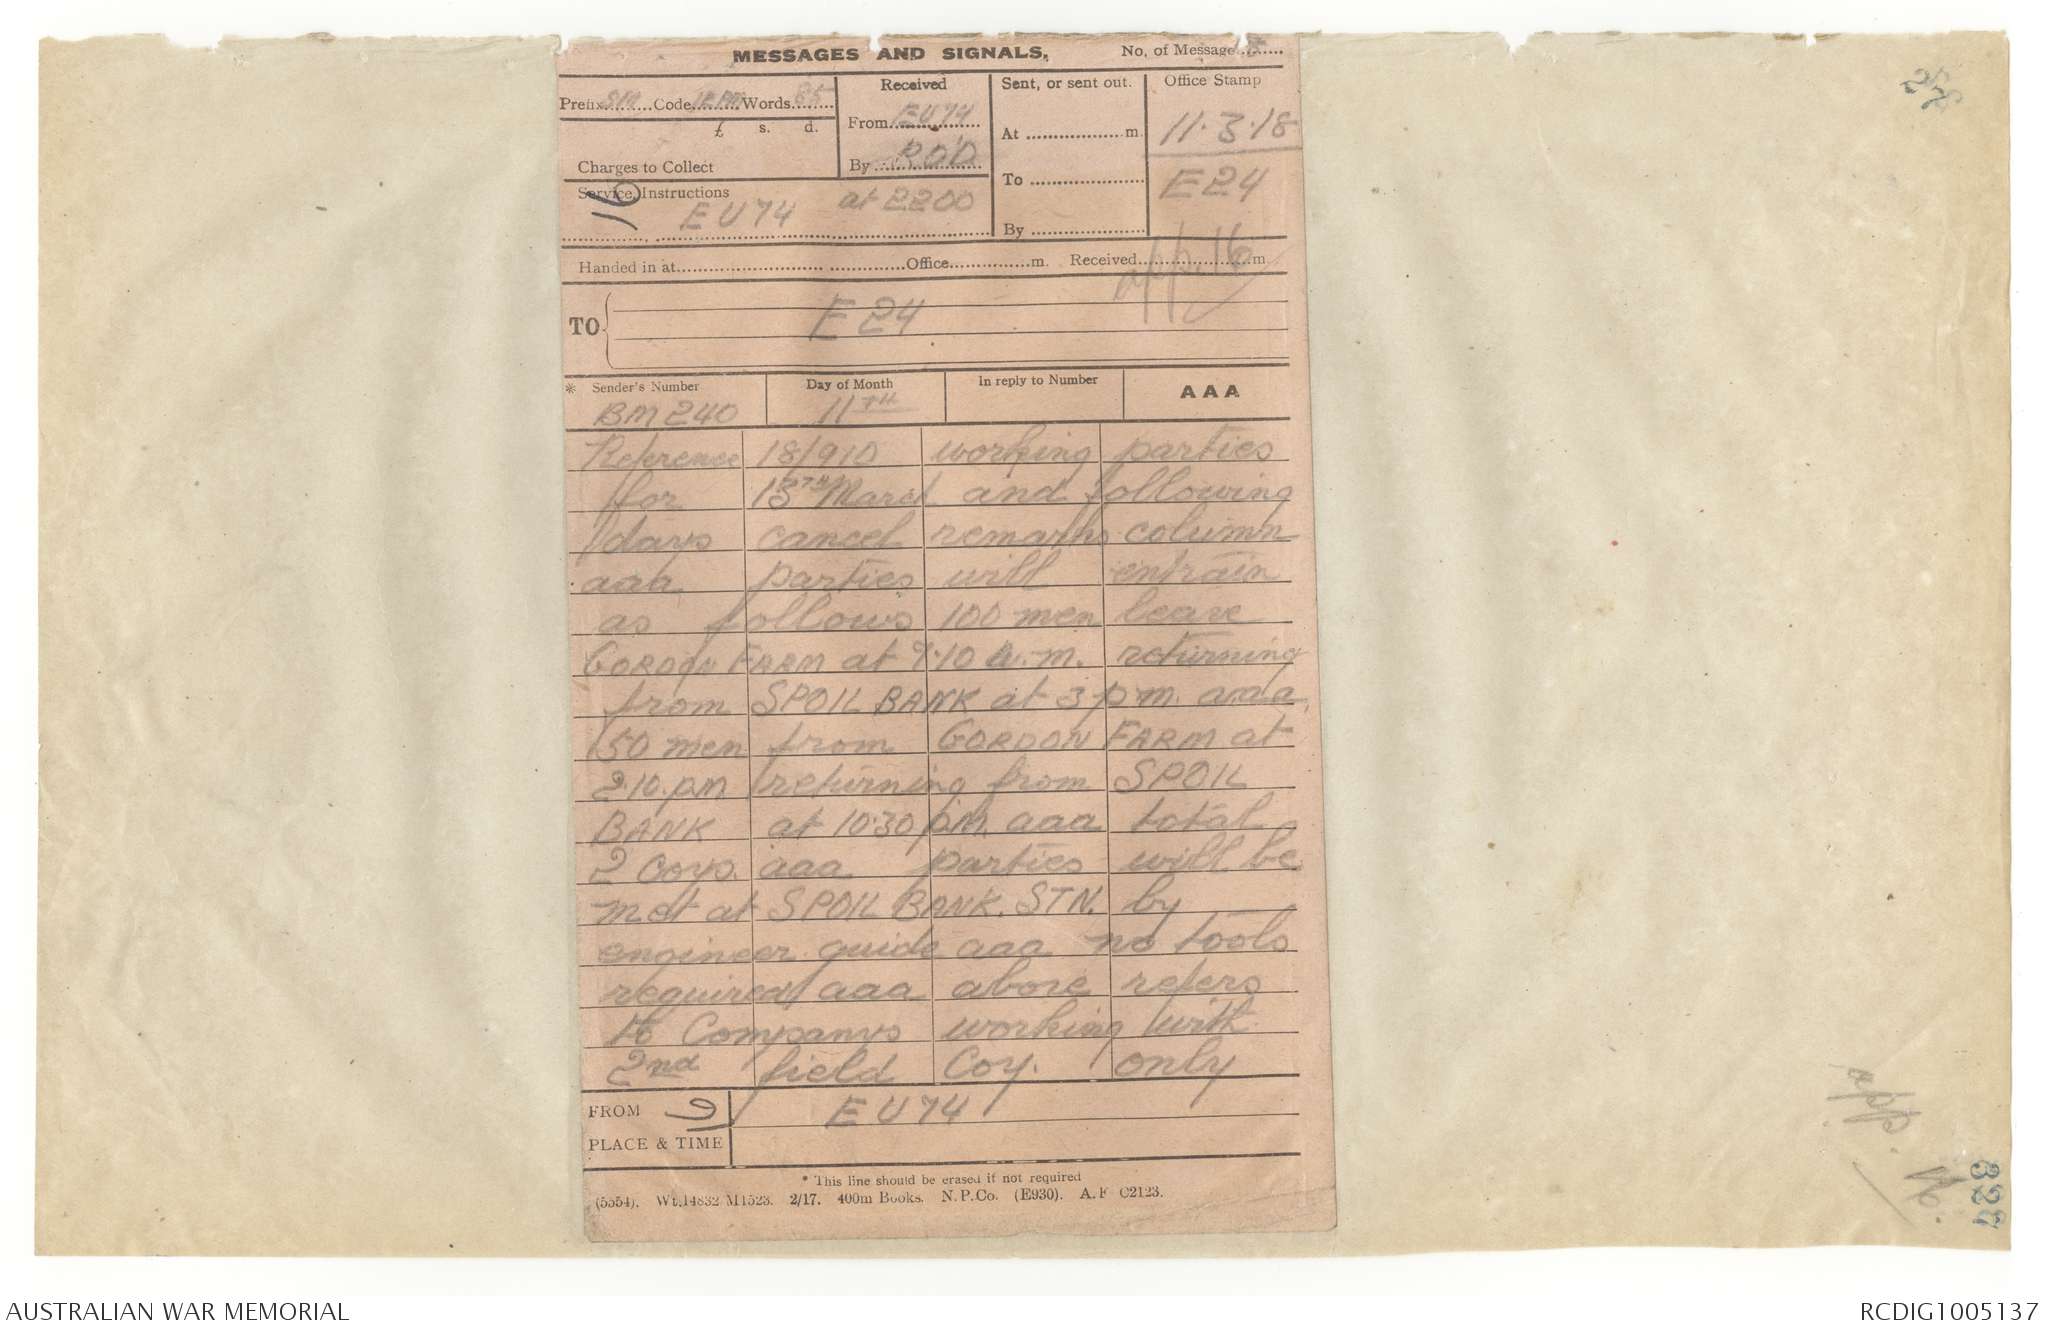 MESSAGES AND SIGNALS. No. of Message
Prefix SM Code 12 PM Words 85
£ s. d.
Charges to Collect
Service Instructions
16
EU74 at 2200
Received
From EU74
By ROD
Sent, or sent out.
At m.
To
By
Office Stamp
11.3.18
E24
app. 16
Handed in at Office m. Received m.
TO E 24
* Sender's Number Day of Month In reply to Number AAA
BM 240 11TH
Reference 18/910 working parties
for 13TH March and following
days cancel remarks column
aaa parties will entrain
as follows 100 men leave
GORDON FARM at 9.10 a.m. returning
from SPOIL BANK at 3 p.m. aaa
150 men from GORDON FARM at
2.10.pm returning from SPOIL
BANK at 10.30 p.m. aaa total
2 Coys. aaa parties will be
met at SPOIL BANK. STN. by
engineer guide aaa no tools
required aaa above refers
to Companys working with
2nd field Coy. only
FROM EU74
PLACE & TIME
* This line should be erased if not required
(5554). Wt.14832 M1523. 2/17. 400m Books. N.P.Co. (E930). A.F. C2123.
app. 16.
328
AUSTRALIAN WAR MEMORIAL RCDIG1005137